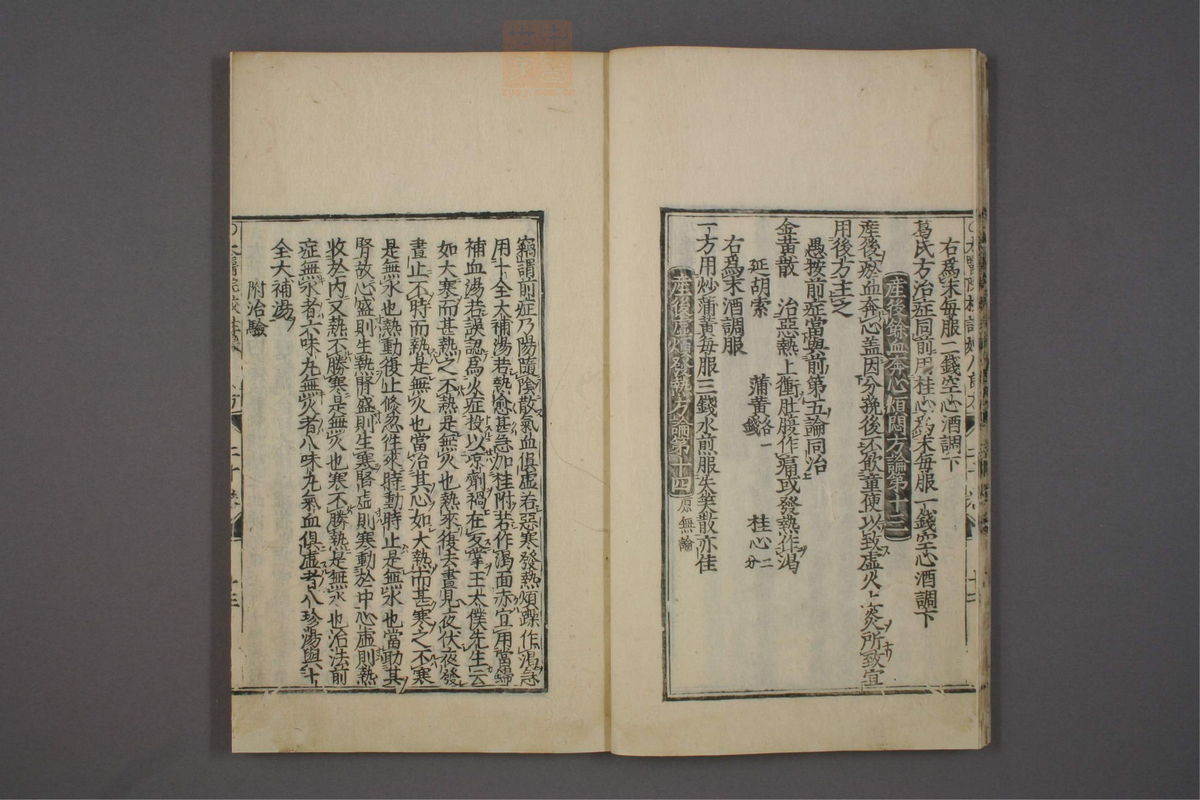 右爲末毎服二錢空心酒調下
葛氏方治症同前用桂心爲末毎服一錢空心酒調下
産後餘血奔心煩悶方論第十三
産後瘀血奔心蓋因分娩後不飮童便以致虚火上炎所致宜
用後方主之
愚按前症當與前第五論同治
金黄散 治惡熱上衝肚腹作痛或發熱作渇
延胡索 蒲黄各一錢 桂心二分
右爲末酒調服
一方用炒蒲黄毎服三錢水煎服失笑散亦佳
産後虚煩發熱方論第十四 原無論
竊謂前症乃陽隨陰散氣血倶虚若惡寒發熱煩躁作渇急
用十全大補湯若熱愈甚急加桂附若作渇面赤宜用當歸
補血湯若誤認爲火症投以凉劑禍在反掌王太僕先生云
如大寒而甚熱之不熱是無火也熱來復去晝見夜伏夜發
晝止不時而熱是無火也當治其心如大熱而甚寒之不寒
是無水也熱動復止倏忽往來時動時止是無水也當助其
腎故心盛則生熱腎盛則生寒腎虚則寒動於中心虚則熱
收於内又熱不勝寒是無火也寒不勝熱是無水也治法前
症無水者六味丸無火者八味丸氣血倶虚者八珍湯與十
全大補湯
附治驗